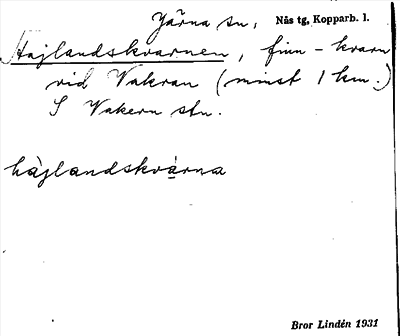 Järna sn, Nås tg, Kopparb. l.
Hajlandskvarnen, finn-kvarn
vid Vakran (minst 1 km.)
S Vakern stn.
hàjlandskvàrna
Bror Lindén 1931